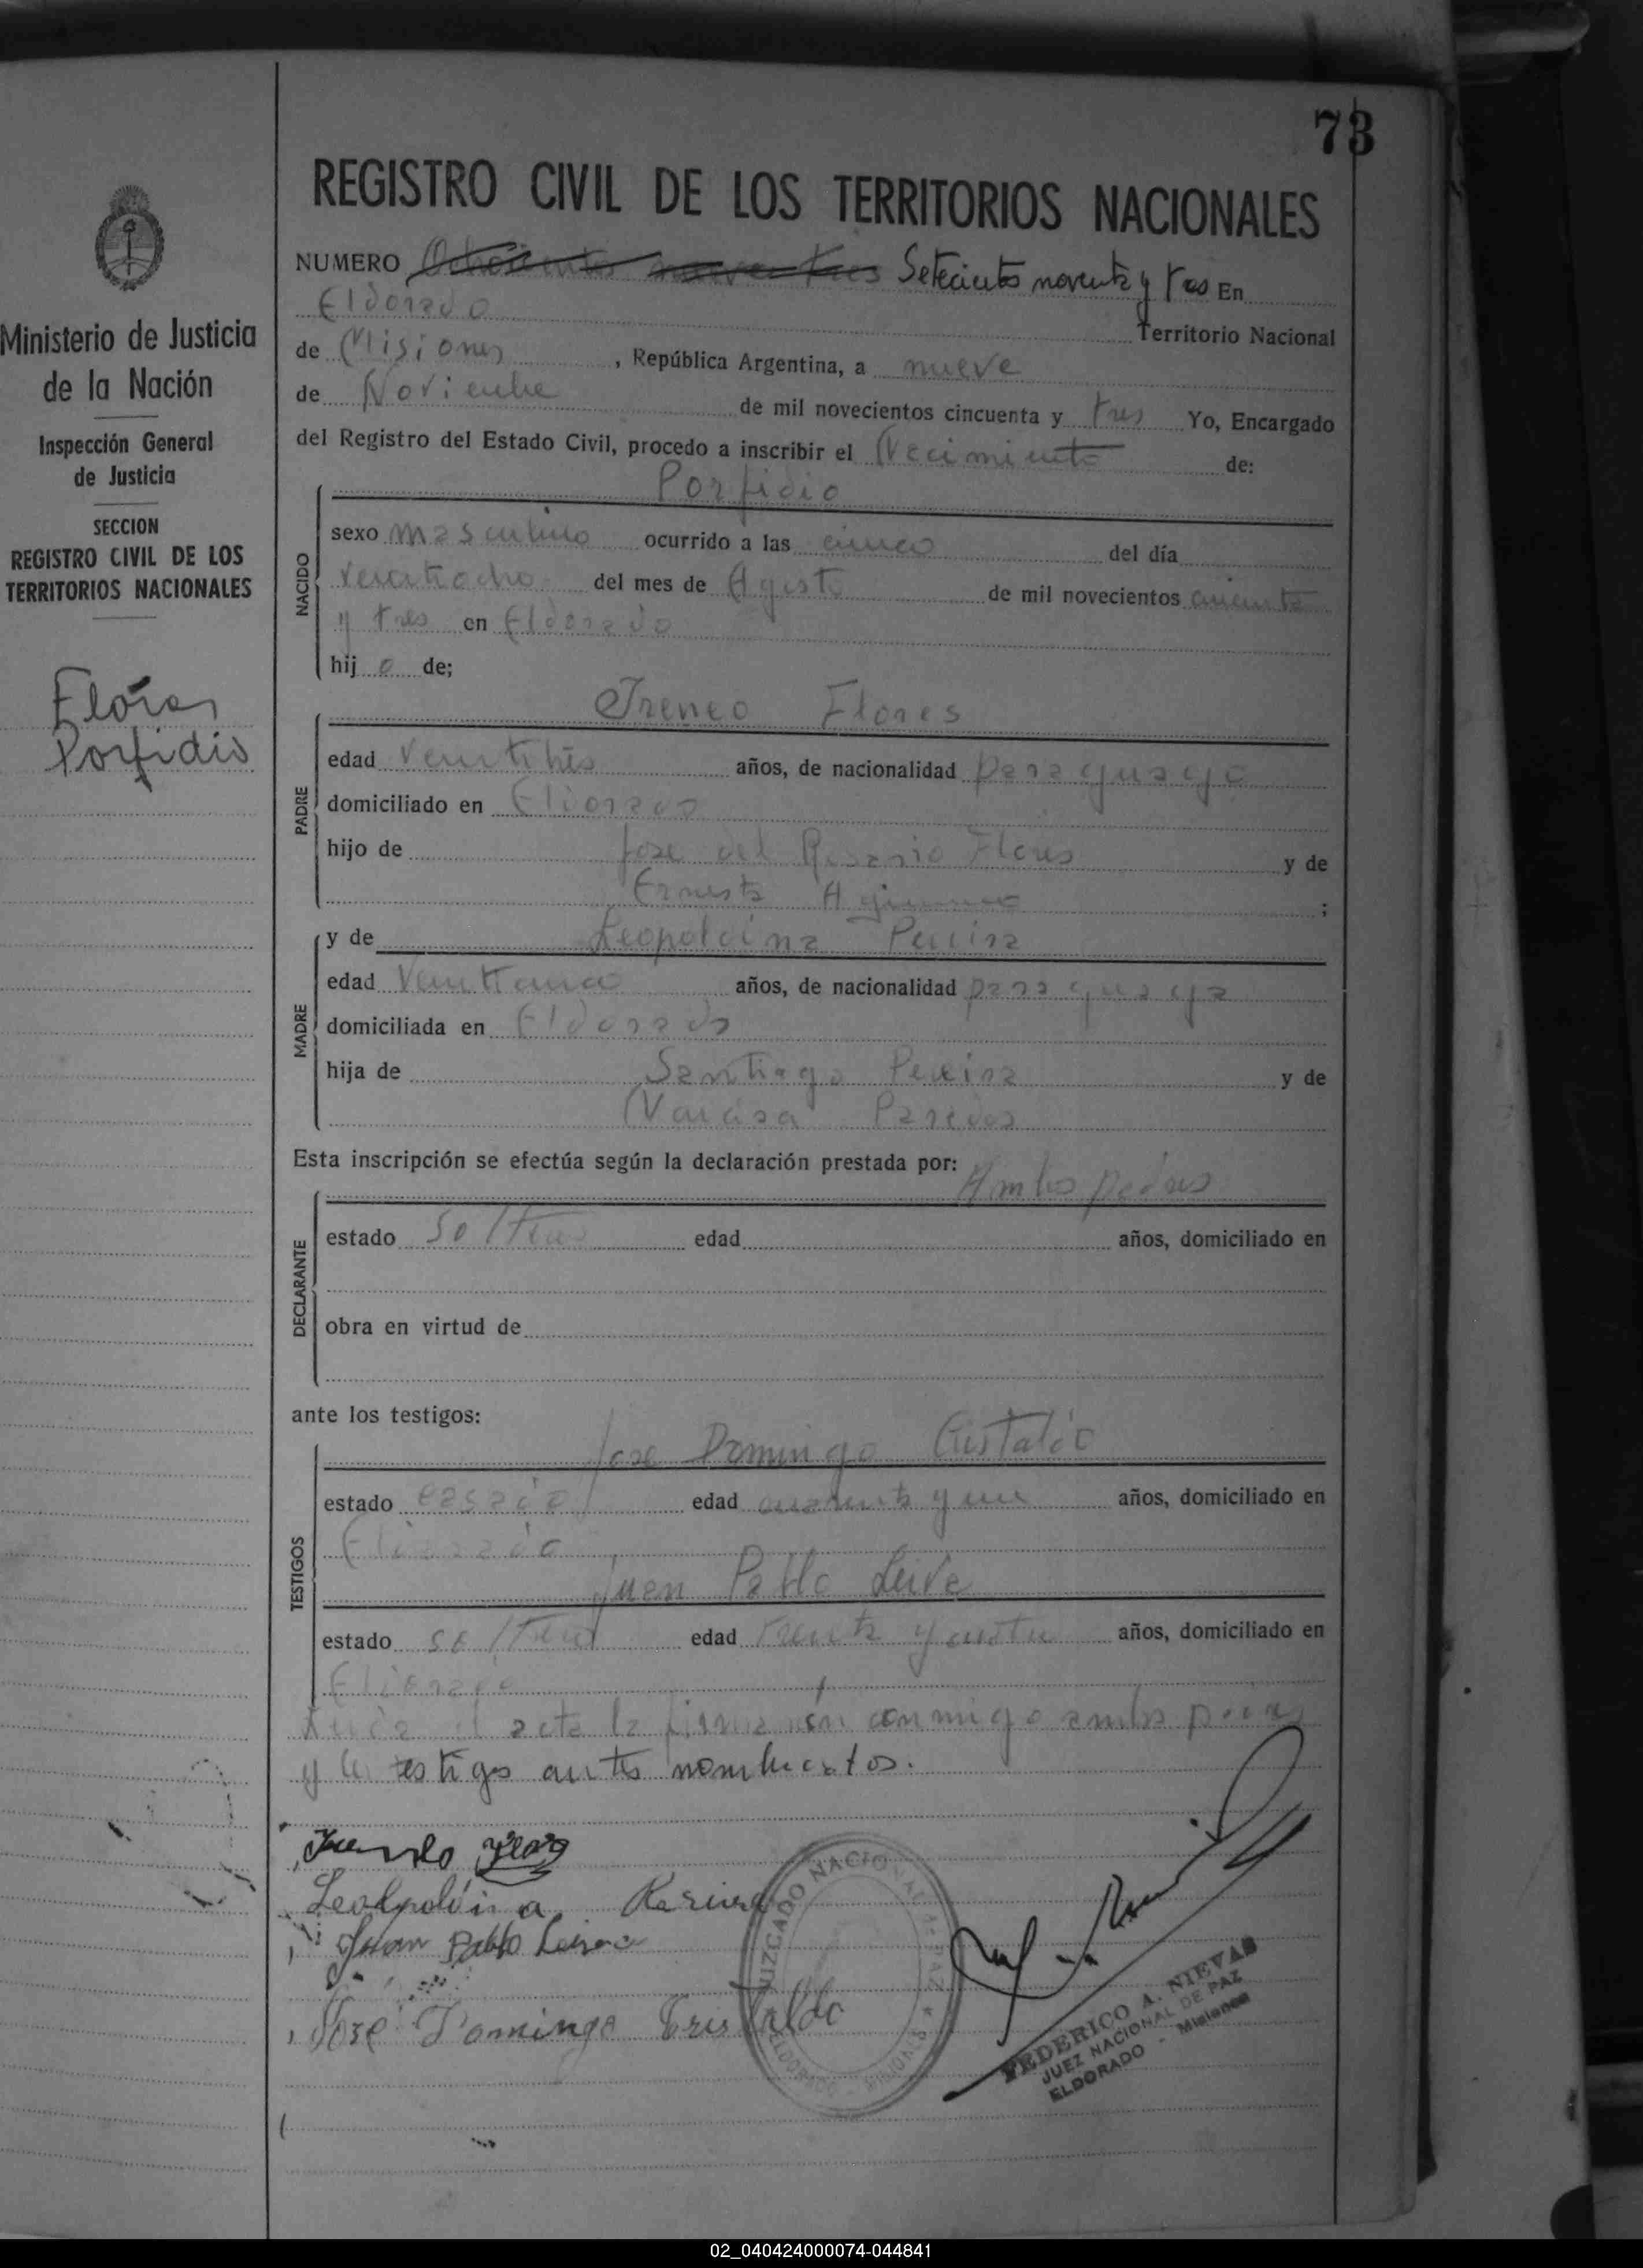 73
REGISTRO CIVIL DE LOS TERRITORIOS NACIONALES
NUMERO Setecientos noventa y tres En
Eldorado
Territorio Nacional
de Misiones, República Argentina, a nueve
de Noviembre de mil novecientos cincuenta y tres Yo, Encargado
del Registro del Estado Civil, procedo a inscribir el Nacimiento de:
Porfidio
NACIDO
sexo masculino ocurrido a las cinco del día
veintiocho del mes de Agosto de mil novecientos cincuenta
y tres en Eldorado
hijo de;
Ministerio de Justicia
de la Nación
Inspección General
de Justicia
SECCION
REGISTRO CIVIL DE LOS
TERRITORIOS NACIONALES
Flores
Porfidio
Ireneo Flores
PADRE
edad veintitrés años, de nacionalidad paraguayo
domiciliado en Eldorado
hijo de Jose del Rosario Flores y de
Ernesta ;
y de Leopoldina Pereira
MADRE
edad años, de nacionalidad paraguaya
domiciliada en Eldorado
hija de Santiago Pereira y de
Paredes
Esta inscripción se efectúa según la declaración prestada por:
Ambos padres
DECLARANTE
estado solteros edad años, domiciliado en
obra en virtud de
ante los testigos:
Jose Domingo Cristaldo
TESTIGOS
estado casado edad cuarenta y un años, domiciliado en
Eldorado
Juan Pablo Leiva
estado soltero edad treinta y cuatro años, domiciliado en
Eldorado
Leida el acta la firmarón conmigo ambos padres
y los testigos antes nombrados.
Leolpoldina
Juan Pablo Leiva
José Domingo Cristaldo
JUZGADO NACIONAL DE PAZ
ELDORADO - MISIONES
FEDERICO A. NIEVAS
JUEZ NACIONAL DE PAZ
ELDORADO - Misiones
02_040424000074-044841